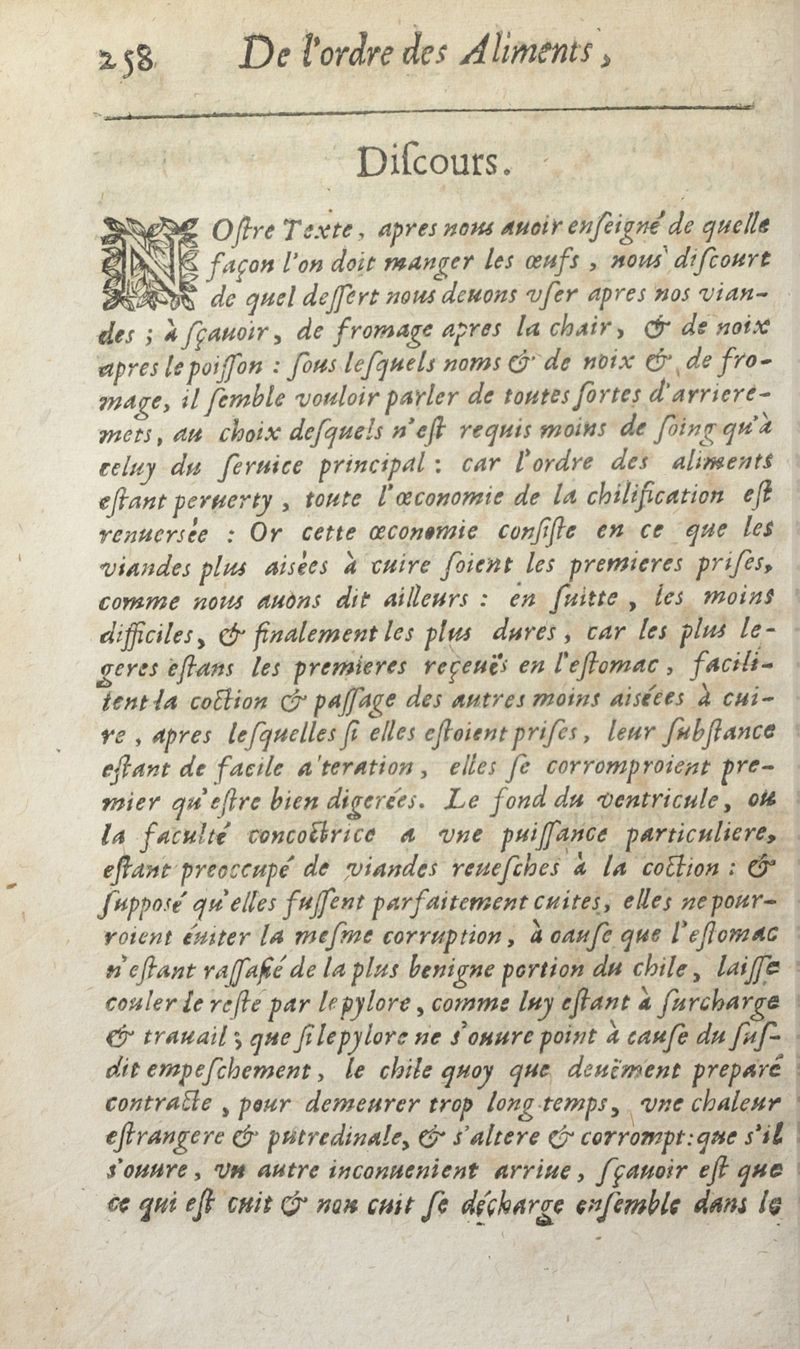 258. De l'ordre des Aliments,
Diſcours.
NOſtre Texte, apres nous auoir enſeigné de quelle
façon l'on doit manger les œufs, nous diſcourt
de quel deſſert nous deuons vſer apres nos vian-
des ; à ſçauoir, de fromage apres la chair, & de noix
apres le poiſſon : ſous leſquels noms & de noix & de fro-
mage, il ſemble vouloir parler de toutes ſortes d'arriere-
mets, au choix deſquels n'eſt requis moins de ſoing qu'à
celuy du ſeruice principal : car l'ordre des aliments
eſtant peruerty, toute l'œconomie de la chilification eſt
renuersée : Or cette œconomie conſiſte en ce que les
viandes plus aisées à cuire ſoient les premieres priſes,
comme nous auons dit ailleurs : en ſuitte, les moins
difficiles, & finalement les plus dures, car les plus le-
geres eſtans les premieres reçeuës en l'eſtomac, facili-
tent la coction & paſſage des autres moins aisées à cui-
re, apres leſquelles ſi elles eſtoient priſes, leur ſubſtance
eſtant de facile a'teration, elles ſe corromproient pre-
mier qu'eſtre bien digerées. Le fond du ventricule, ou
la faculté concoctrice a vne puiſſance particuliere,
eſtant preoccupé de viandes reueſches à la coction : &
ſuppoſé qu'elles fuſſent parfaitement cuites, elles ne pour-
roient éuiter la meſme corruption, à cauſe que l'eſtomac
n'eſtant raſſaſié de la plus benigne portion du chile, laiſſe
couler le reſte par le pylore, comme luy eſtant à ſurcharge
& trauail ; que ſi le pylore ne s'ouure point à cauſe du ſuſ-
dit empeſchement, le chile quoy que deuëment preparé
contracte, pour demeurer trop long temps, vne chaleur
eſtrangere & putredinale, & s'altere & corrompt : que s'il
s'ouure, vn autre inconuenient arriue, ſçauoir eſt que
ce qui eſt cuit & non cuit ſe décharge enſemble dans le